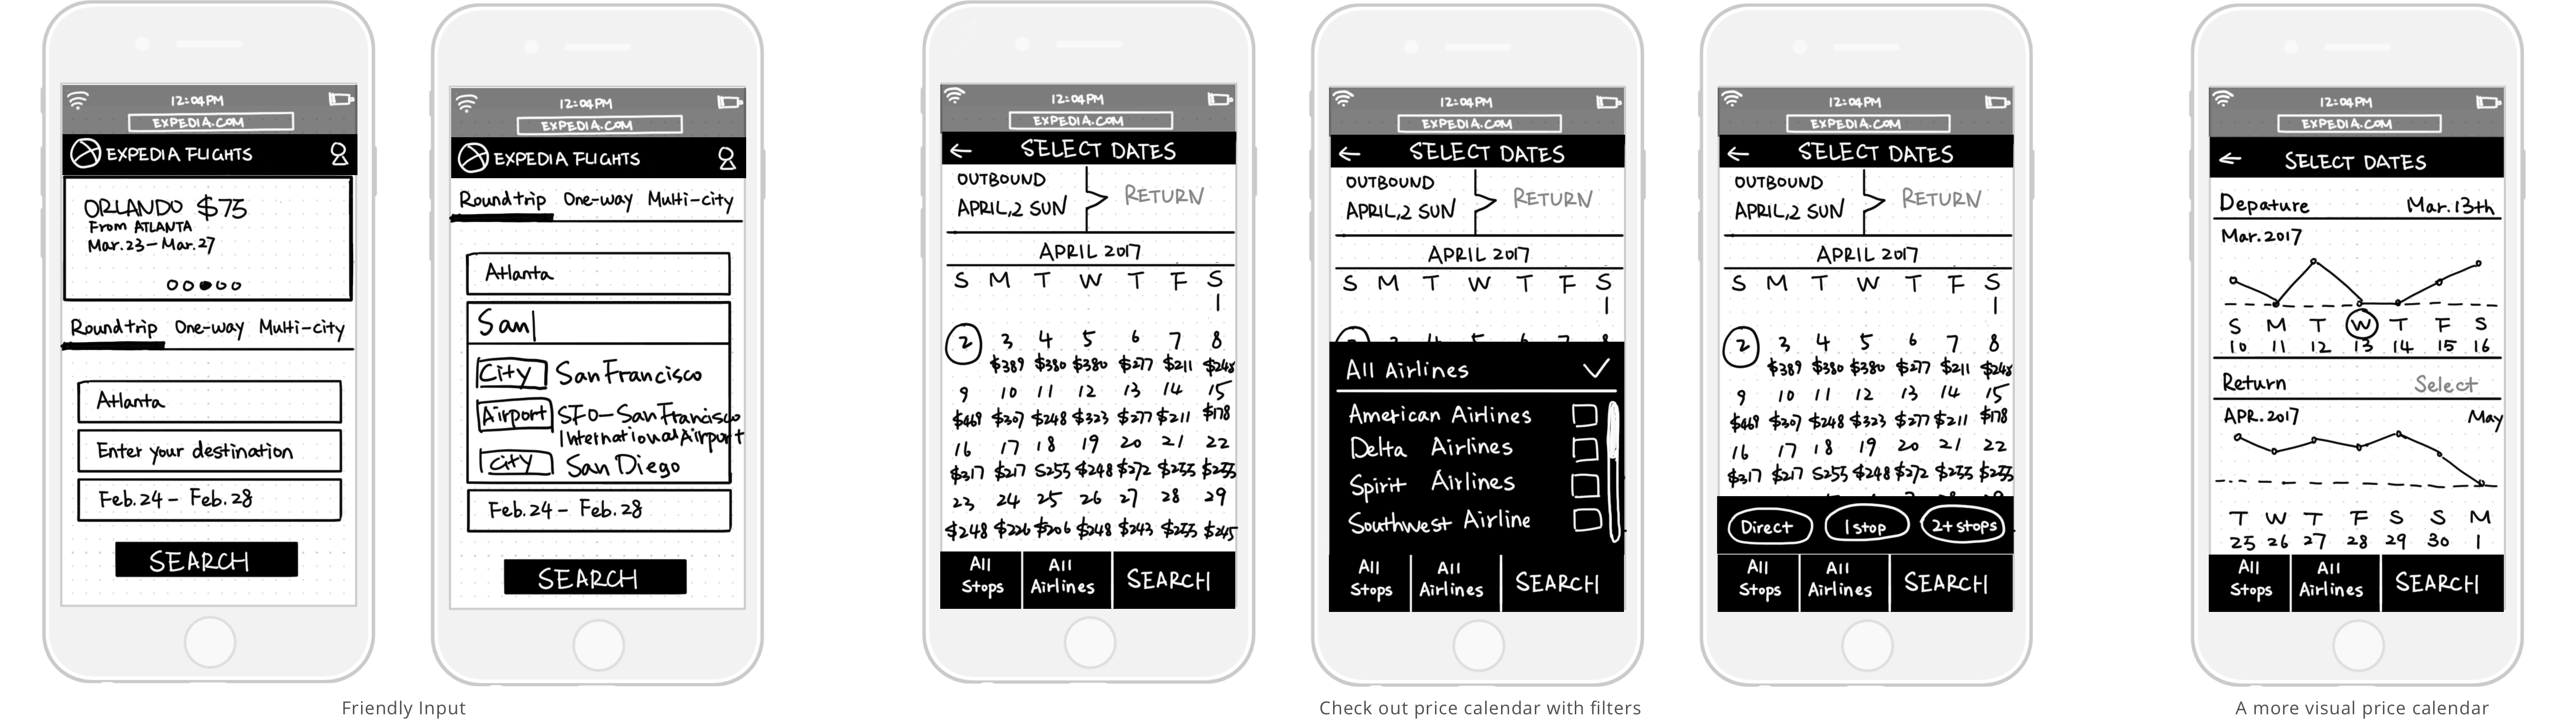 12:04PM
EXPEDIA.COM
EXPEDIA FLIGHTS
ORLANDO $75
From ATLANTA
Mar.23 - Mar.27
Roundtrip One-way Multi-city
Atlanta
Enter your destination
Feb.24 - Feb.28
SEARCH
12:04PM
EXPEDIA.COM
EXPEDIA FLIGHTS
Roundtrip One-way Multi-city
Atlanta
San
City San Francisco
Airport SFO-San Francisco
International Airport
City San Diego
Feb.24 - Feb.28
SEARCH
Friendly Input
12:04PM
EXPEDIA.COM
SELECT DATES
OUTBOUND
APRIL,2 SUN
RETURN
APRIL 2017
S M T W T F S
1
2 3 4 5 6 7 8
$389 $380 $380 $277 $211 $248
9 10 11 12 13 14 15
$469 $307 $248 $323 $277 $211 $178
16 17 18 19 20 21 22
$317 $217 $255 $248 $272 $255 $255
23 24 25 26 27 28 29
$248 $226 $206 $248 $243 $255 $245
All Stops
All Airlines
SEARCH
12:04PM
EXPEDIA.COM
SELECT DATES
OUTBOUND
APRIL,2 SUN
RETURN
APRIL 2017
S M T W T F S
1
All Airlines
American Airlines
Delta Airlines
Spirit Airlines
Southwest Airline
All Stops
All Airlines
SEARCH
12:04PM
EXPEDIA.COM
SELECT DATES
OUTBOUND
APRIL,2 SUN
RETURN
APRIL 2017
S M T W T F S
1
2 3 4 5 6 7 8
$389 $380 $380 $277 $211 $248
9 10 11 12 13 14 15
$469 $307 $248 $323 $277 $211 $178
16 17 18 19 20 21 22
$317 $217 $255 $248 $272 $255 $255
Direct 1 stop 2+ stops
All Stops
All Airlines
SEARCH
Check out price calendar with filters
12:04PM
EXPEDIA.COM
SELECT DATES
Depature Mar.13th
Mar.2017
S M T W T F S
10 11 12 13 14 15 16
Return Select
APR.2017 May
T W T F S S M
25 26 27 28 29 30 1
All Stops
All Airlines
SEARCH
A more visual price calendar